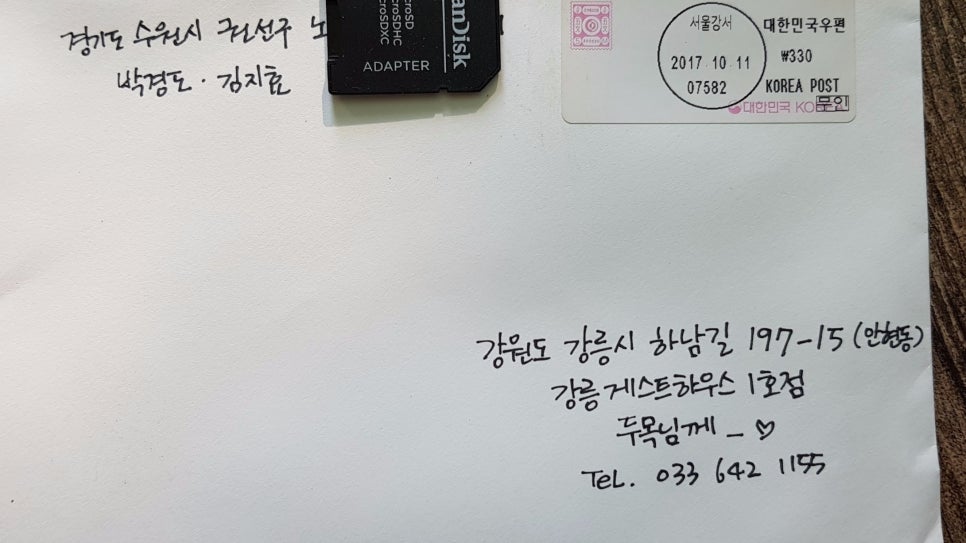 경기도 수원시 권선구
박경도 · 김지효
SanDisk
microSD
microSDHC
microSDXC
ADAPTER
서울강서
2017.10.11
07582
대한민국우편
₩330
KOREA POST
대한민국 KO
문인
강원도 강릉시 하남길 197-15 (안현동)
강릉게스트하우스 1호점
두목님께 _ ♡
TeL. 033 642 1155